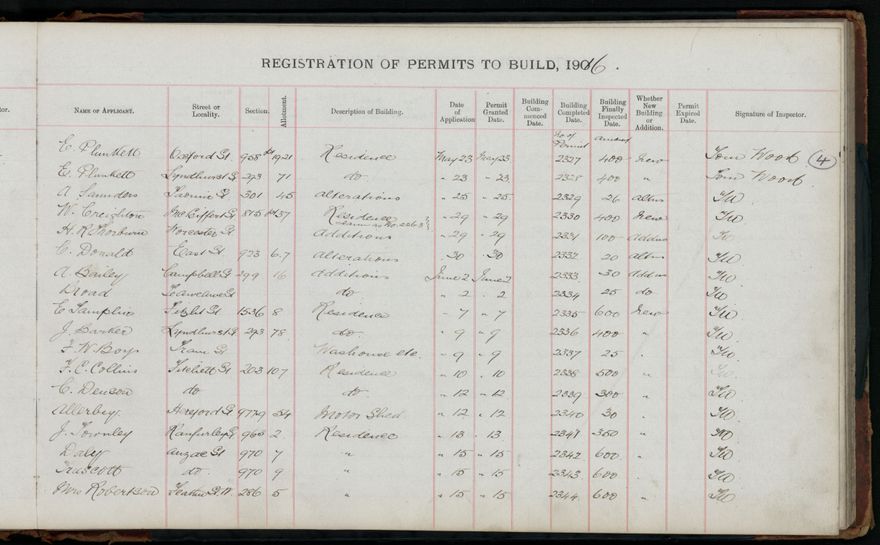 REGISTRATION OF PERMITS TO BUILD, 1916.
tor. NAME OF APPLICANT. Street or Locality. Section. Allotment. Description of Building. Date of Application Permit Granted Date. Building Commenced Date. Building Completed Date. Building Finally Inspected Date. Whether New Building or Addition. Permit Expired Date. Signature of Inspector.
No of Permit Amount
E. Plunkett Oxford St. 908 19-21 Residence May 23 May 23 2327 400 New Tom Wood 4
E. Plunkett Lyndhurst St 293 71 do " 23 " 23 2328 400 " Tom Wood
A Saunders 301 45 alterations " 25 " 25 2329 26 altns TW
W. Creighton St 37 Residence " 29 " 29 2330 400 New TW
H. R. Thorburn Worcester St additions " 29 " 29 2331 100 Addns
C. Donald East St 923 6-7 alterations 30 30 2332 20 altns TW
A Bailey Campbell St 299 16 additions June 2 June 2 2333 30 Addns TW
Broad do " 2 " 2 2334 25 do TW
E Samplin Fitzht St 1536 8 Residence " 7 " 7 2335 600 New TW
J. Barker Lyndhurst St 293 78 do. " 9 " 9 2336 400 " TW
F. W. Boys Tram St Washouse etc. " 9 " 9 2337 25 . TW
F. C. Collins Fitchett St 203 107 Residence " 10 " 10 2338 500 " TW
C. Denson do do. " 12 " 12 2339 300 " TW
Allerby. Hereford St 54 Motor Shed " 12 " 12 2340 30 . TW
J. Townley Ranfurley St 960 2 Residence " 13 " 13 2341 350 " TW
Daly Anzac St 970 7 " " 15 " 15 2342 600 . TW
Truscott do. 970 9 " " 15 " 15 2343 600 . TW
Mrs Robertson Feathn St W. 286 5 " " 15 " 15 2344 600 " TW